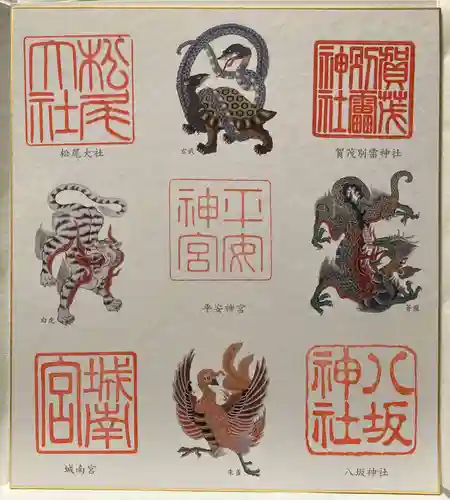 松尾大社
玄武
賀茂別雷神社
松尾大社
玄武
賀茂別雷神社
白虎
平安神宮
蒼龍
平安神宮
城南宮
朱雀
八坂神社
城南宮
八坂神社